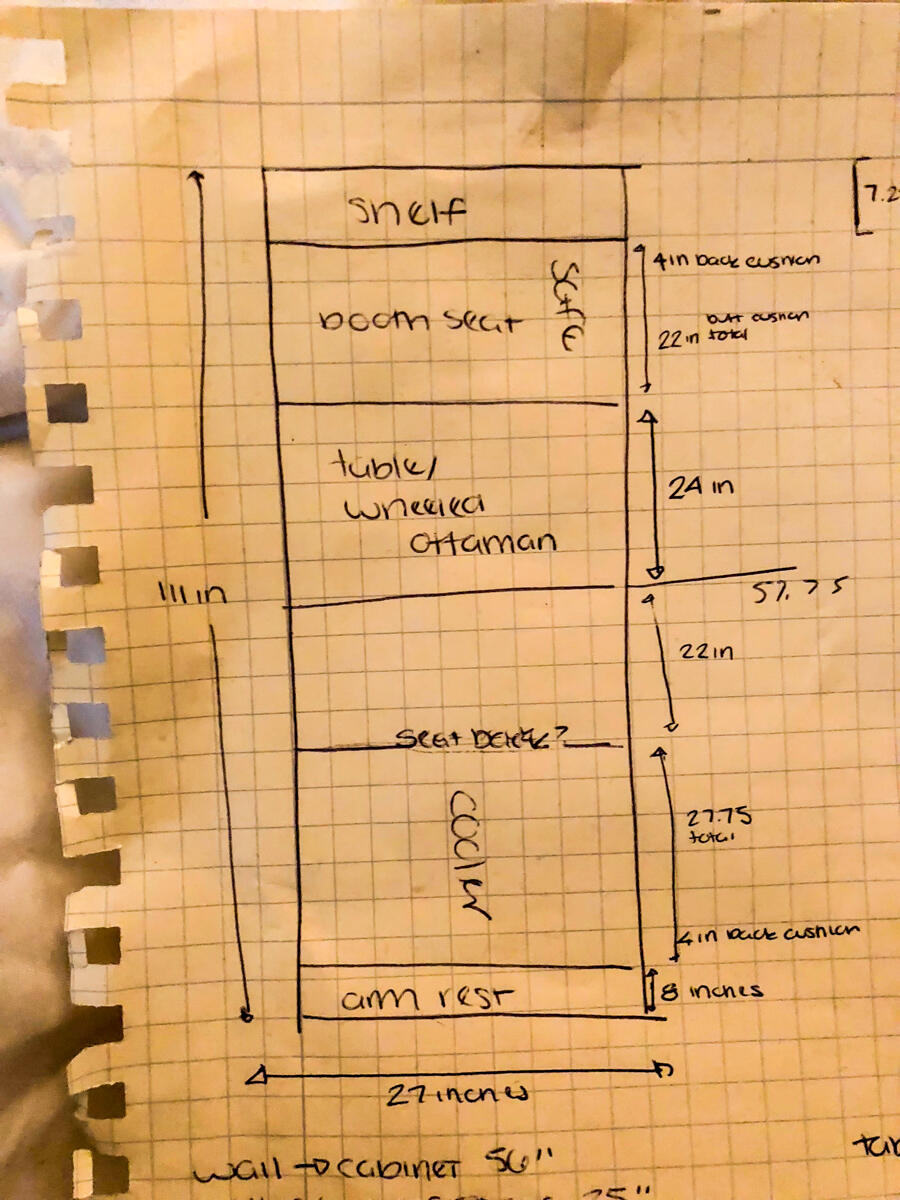 shelf
7.2
4in back cushion
boom seat
safe
butt cushion
22in total
table/
wheeled
ottaman
24 in
57.75
111 in
22in
seat back?
cooler
27.75
total
4in back cushion
arm rest
8 inches
27 inches
wall → cabinet 56"